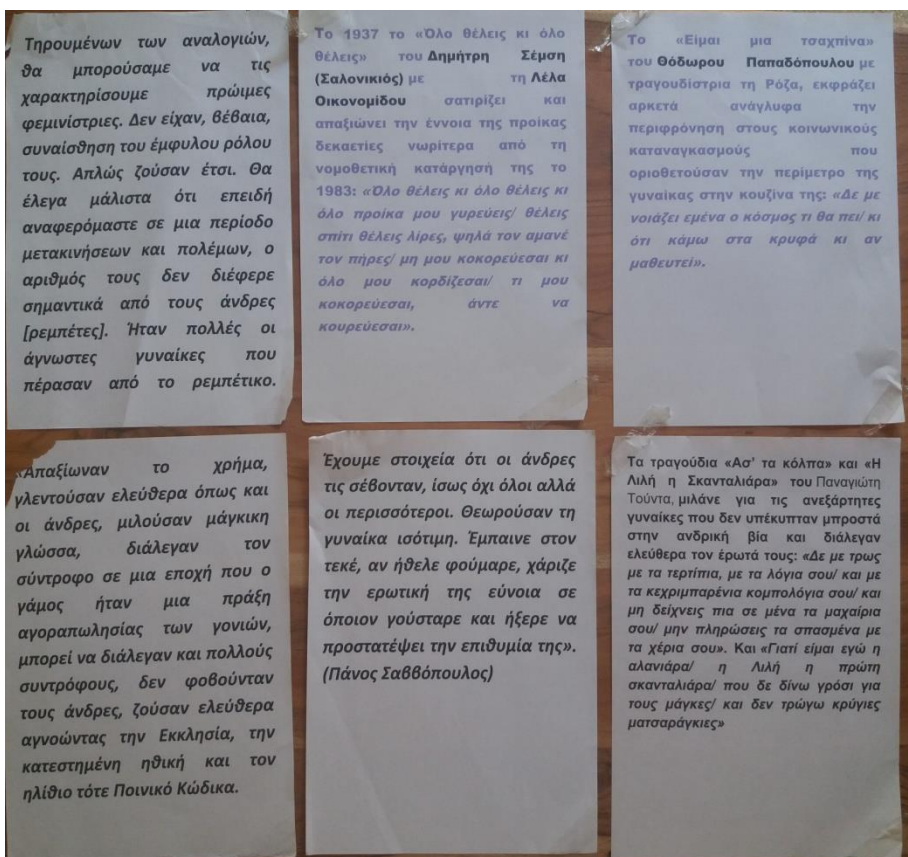 Τηρουμένων των αναλογιών,
θα μπορούσαμε να τις
χαρακτηρίσουμε πρώιμες
φεμινίστριες. Δεν είχαν, βέβαια,
συναίσθηση του έμφυλου ρόλου
τους. Απλώς ζούσαν έτσι. Θα
έλεγα μάλιστα ότι επειδή
αναφερόμαστε σε μια περίοδο
μετακινήσεων και πολέμων, ο
αριθμός τους δεν διέφερε
σημαντικά από τους άνδρες
[ρεμπέτες]. Ήταν πολλές οι
άγνωστες γυναίκες που
πέρασαν από το ρεμπέτικο.
Το 1937 το «Όλο θέλεις κι όλο
θέλεις» του Δημήτρη Σέμση
(Σαλονικιός) με τη Λέλα
Οικονομίδου σατιρίζει και
απαξιώνει την έννοια της προίκας
δεκαετίες νωρίτερα από τη
νομοθετική κατάργησή της το
1983: «Όλο θέλεις κι όλο θέλεις κι
όλο προίκα μου γυρεύεις/ θέλεις
σπίτι θέλεις λίρες, ψηλά τον αμανέ
τον πήρες/ μη μου κοκορεύεσαι κι
όλο μου κορδίζεσαι/ τι μου
κοκορεύεσαι, άντε να
κουρεύεσαι».
Το «Είμαι μια τσαχπίνα»
του Θόδωρου Παπαδόπουλου με
τραγουδίστρια τη Ρόζα, εκφράζει
αρκετά ανάγλυφα την
περιφρόνηση στους κοινωνικούς
καταναγκασμούς που
οριοθετούσαν την περίμετρο της
γυναίκας στην κουζίνα της: «Δε με
νοιάζει εμένα ο κόσμος τι θα πει/ κι
ότι κάμω στα κρυφά κι αν
μαθευτεί».
«Απαξίωναν το χρήμα,
γλεντούσαν ελεύθερα όπως και
οι άνδρες, μιλούσαν μάγκικη
γλώσσα, διάλεγαν τον
σύντροφο σε μια εποχή που ο
γάμος ήταν μια πράξη
αγοραπωλησίας των γονιών,
μπορεί να διάλεγαν και πολλούς
συντρόφους, δεν φοβούνταν
τους άνδρες, ζούσαν ελεύθερα
αγνοώντας την Εκκλησία, την
κατεστημένη ηθική και τον
ηλίθιο τότε Ποινικό Κώδικα.
Έχουμε στοιχεία ότι οι άνδρες
τις σέβονταν, ίσως όχι όλοι αλλά
οι περισσότεροι. Θεωρούσαν τη
γυναίκα ισότιμη. Έμπαινε στον
τεκέ, αν ήθελε φούμαρε, χάριζε
την ερωτική της εύνοια σε
όποιον γούσταρε και ήξερε να
προστατέψει την επιθυμία της».
(Πάνος Σαββόπουλος)
Τα τραγούδια «Ασ’ τα κόλπα» και «Η
Λιλή η Σκανταλιάρα» του Παναγιώτη
Τούντα, μιλάνε για τις ανεξάρτητες
γυναίκες που δεν υπέκυπταν μπροστά
στην ανδρική βία και διάλεγαν
ελεύθερα τον έρωτά τους: «Δε με τρως
με τα τερτίπια, με τα λόγια σου/ και με
τα κεχριμπαρένια κομπολόγια σου/ και
μη δείχνεις πια σε μένα τα μαχαίρια
σου/ μην πληρώσεις τα σπασμένα με
τα χέρια σου». Και «Γιατί είμαι εγώ η
αλανιάρα/ η Λιλή η πρώτη
σκανταλιάρα/ που δε δίνω γρόσι για
τους μάγκες/ και δεν τρώγω κρύγιες
ματσαράγκιες»